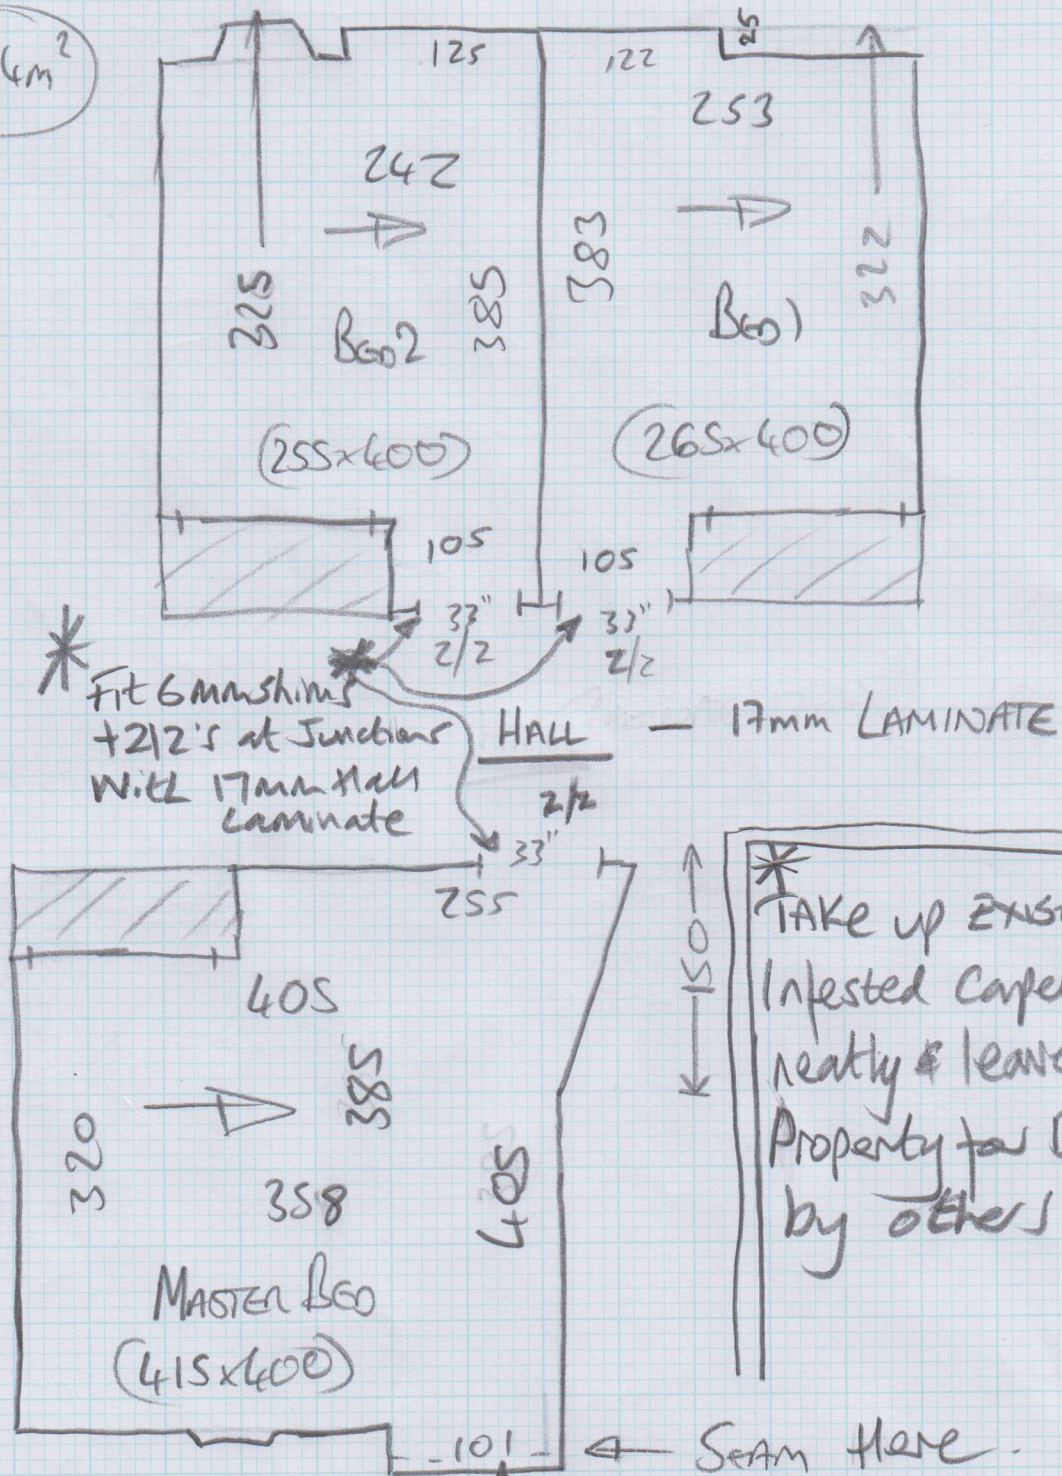 4m²
125
122
25
253
242
325
385
383
322
BED2
BED1
(255x400)
(265x400)
105
105
33"
2/2
33"
2/2
* Fit 6mm shims
+2/2's at Junctions
With 17mm Hall
Laminate
HALL — 17mm LAMINATE
2/2
33"
255
150
405
385
320
358
405
MASTER BED
(415x400)
101
← SEAM Here.
*
TAKE up EXIS
Infested Carpe
neatly & leave
Property for
by others